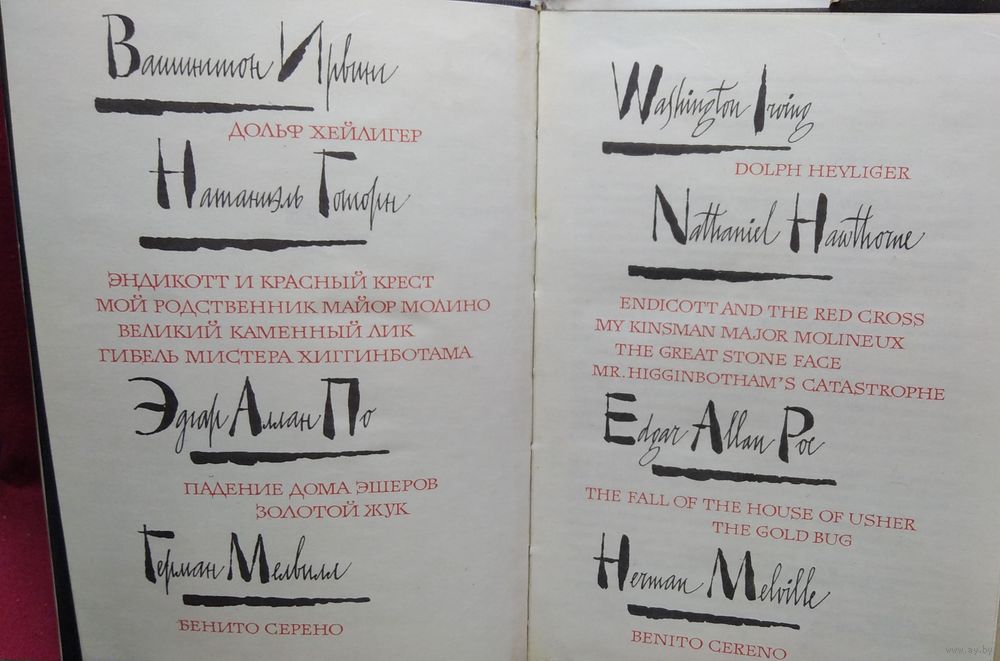 Вашингтон Ирвинг
ДОЛЬФ ХЕЙЛИГЕР
Натаниэль Готорн
ЭНДИКОТТ И КРАСНЫЙ КРЕСТ
МОЙ РОДСТВЕННИК МАЙОР МОЛИНО
ВЕЛИКИЙ КАМЕННЫЙ ЛИК
ГИБЕЛЬ МИСТЕРА ХИГГИНБОТАМА
Эдгар Аллан По
ПАДЕНИЕ ДОМА ЭШЕРОВ
ЗОЛОТОЙ ЖУК
Герман Мелвилл
БЕНИТО СЕРЕНО
Washington Irving
DOLPH HEYLIGER
Nathaniel Hawthorne
ENDICOTT AND THE RED CROSS
MY KINSMAN MAJOR MOLINEUX
THE GREAT STONE FACE
MR. HIGGINBOTHAM'S CATASTROPHE
Edgar Allan Poe
THE FALL OF THE HOUSE OF USHER
THE GOLD BUG
Herman Melville
BENITO CERENO
www.ay.by